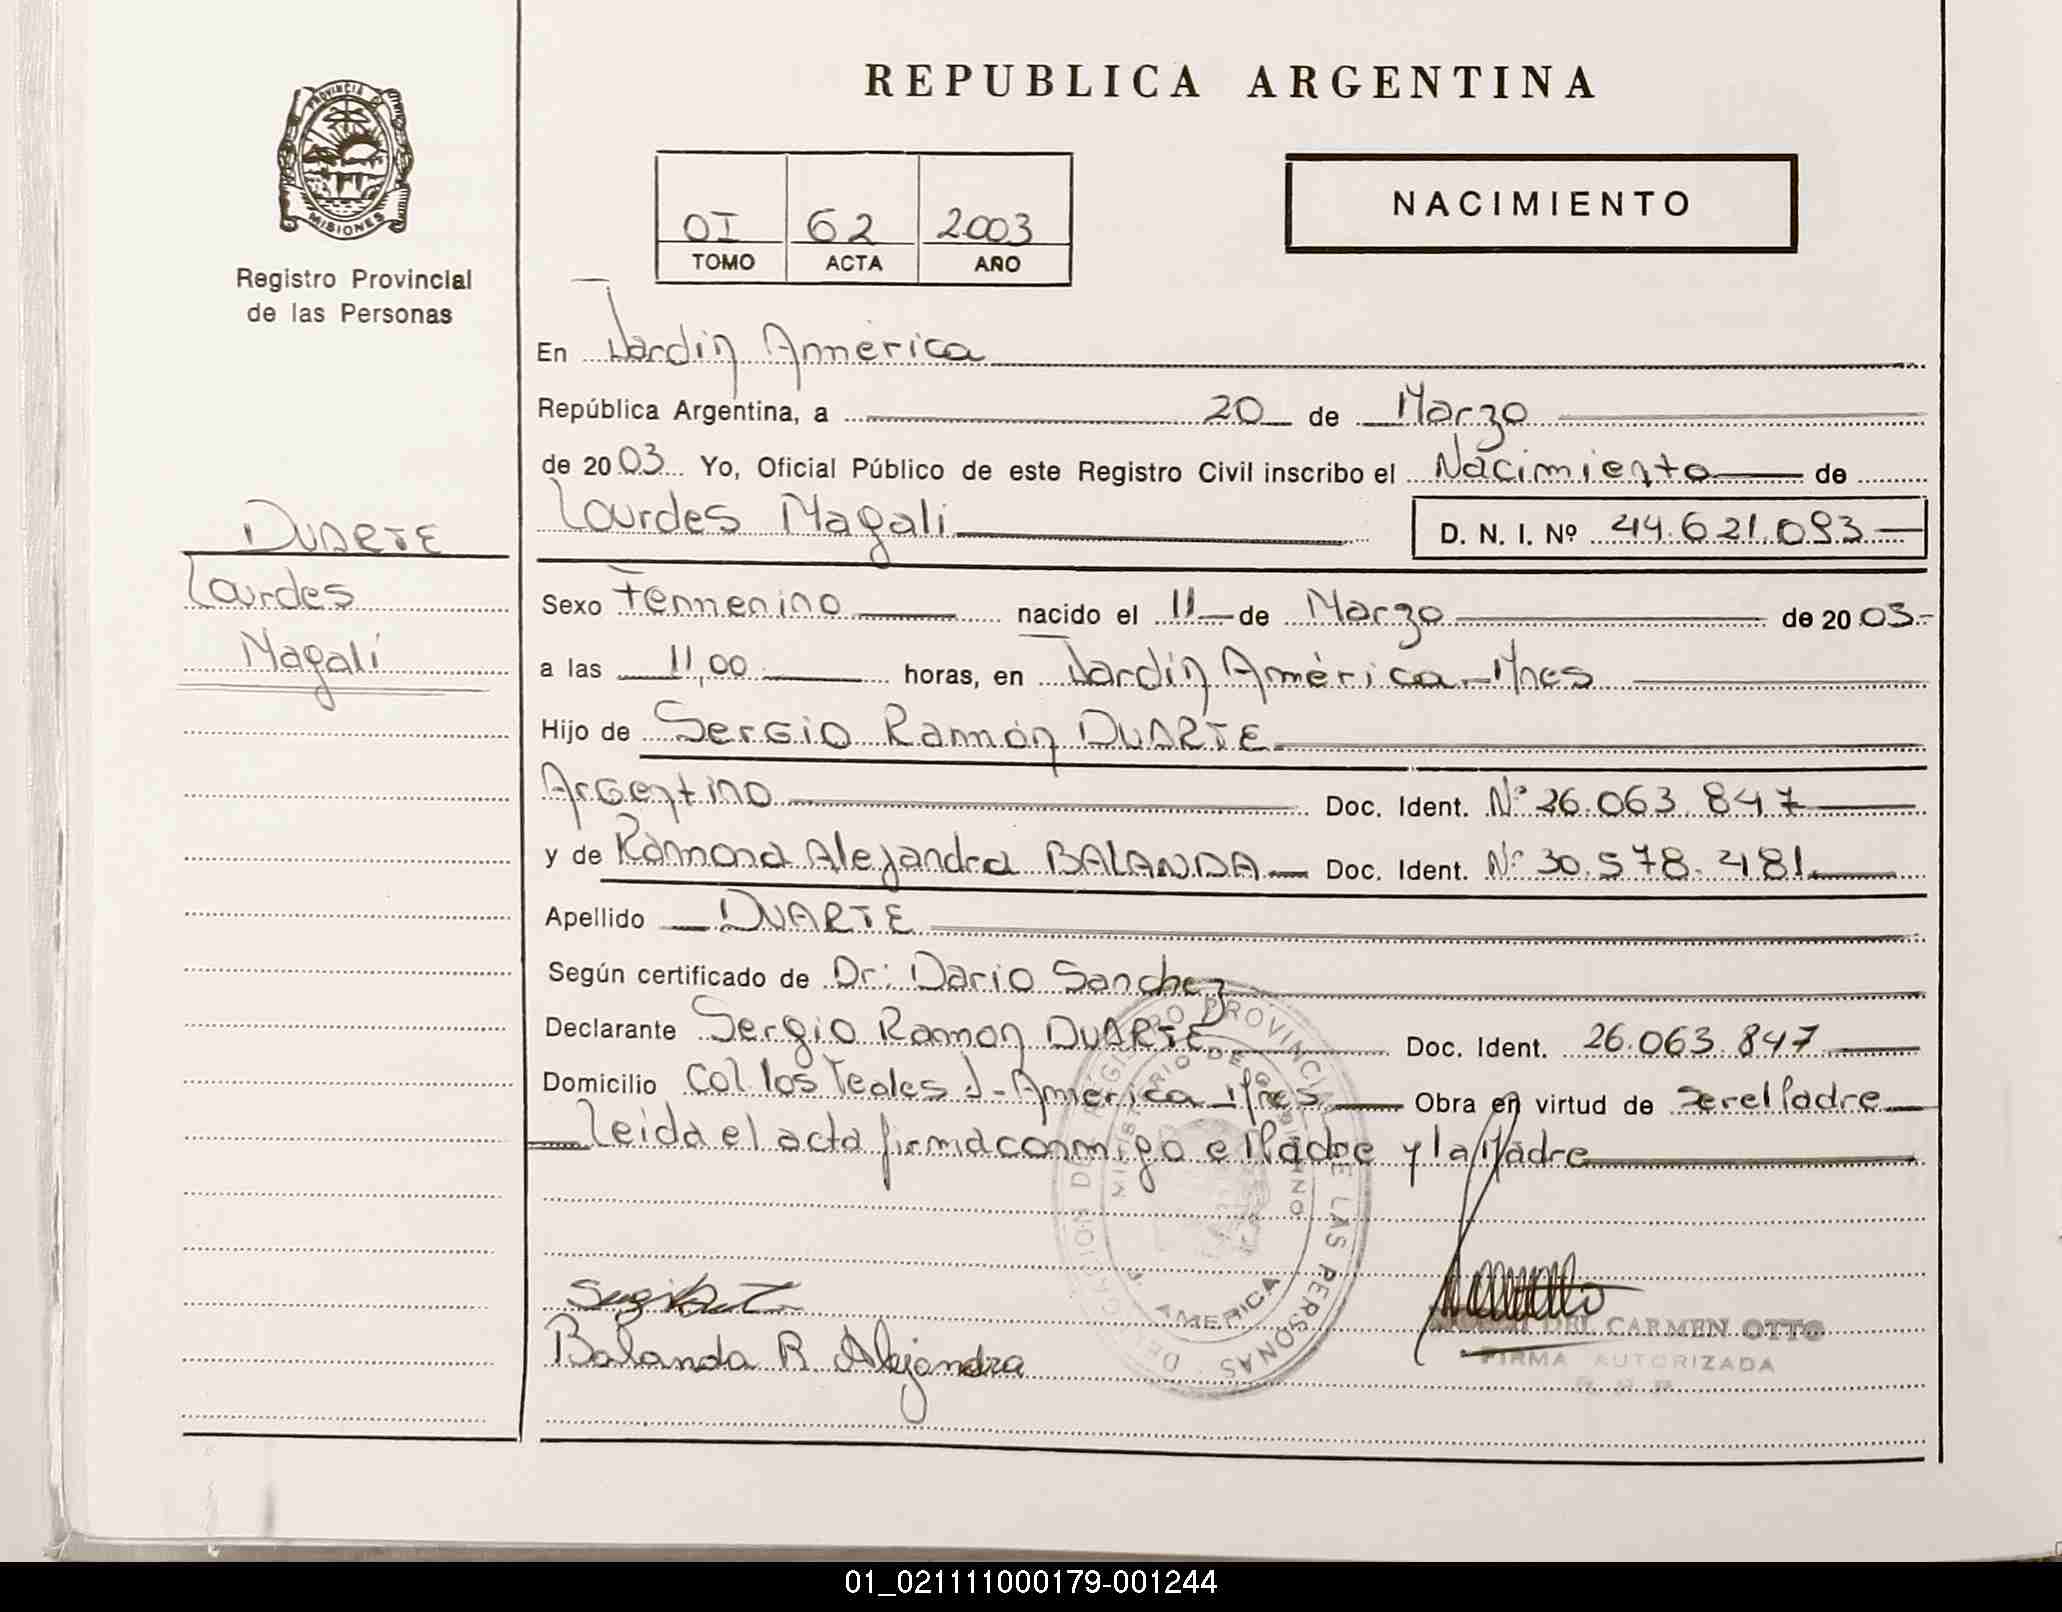 REPUBLICA ARGENTINA
PROVINCIA D
MISIONES
Registro Provincial
de las Personas
OI 62 2003
TOMO ACTA AÑO
NACIMIENTO
En Jardín América
República Argentina, a 20 de Marzo
de 2003 Yo, Oficial Público de este Registro Civil inscribo el Nacimiento de
Lourdes Magalí D. N. I. Nº 44.621.093
DUARTE
Lourdes
Magalí
Sexo Femenino nacido el 11 de Marzo de 2003.-
a las 11,00 horas, en Jardín América - Mnes
Hijo de Sergio Ramón DUARTE
Argentino Doc. Ident. Nº 26.063.847
y de Ramona Alejandra BALANDA Doc. Ident. Nº 30.578.481
Apellido DUARTE
Según certificado de Dr: Dario Sanchez
Declarante Sergio Ramon DUARTE Doc. Ident. 26.063.847
Domicilio Col los Teales J-América - Mnes Obra en virtud de ser el Padre
Leida el acta firma conmigo el Padre y la Madre
REGISTRO PROVINCIAL DE LAS PERSONAS
MINISTERIO DE GOBIERNO
J. AMERICA
Balanda R Alejandra
DEL CARMEN OTTO
FIRMA AUTORIZADA
R. P. P.
01_021111000179-001244